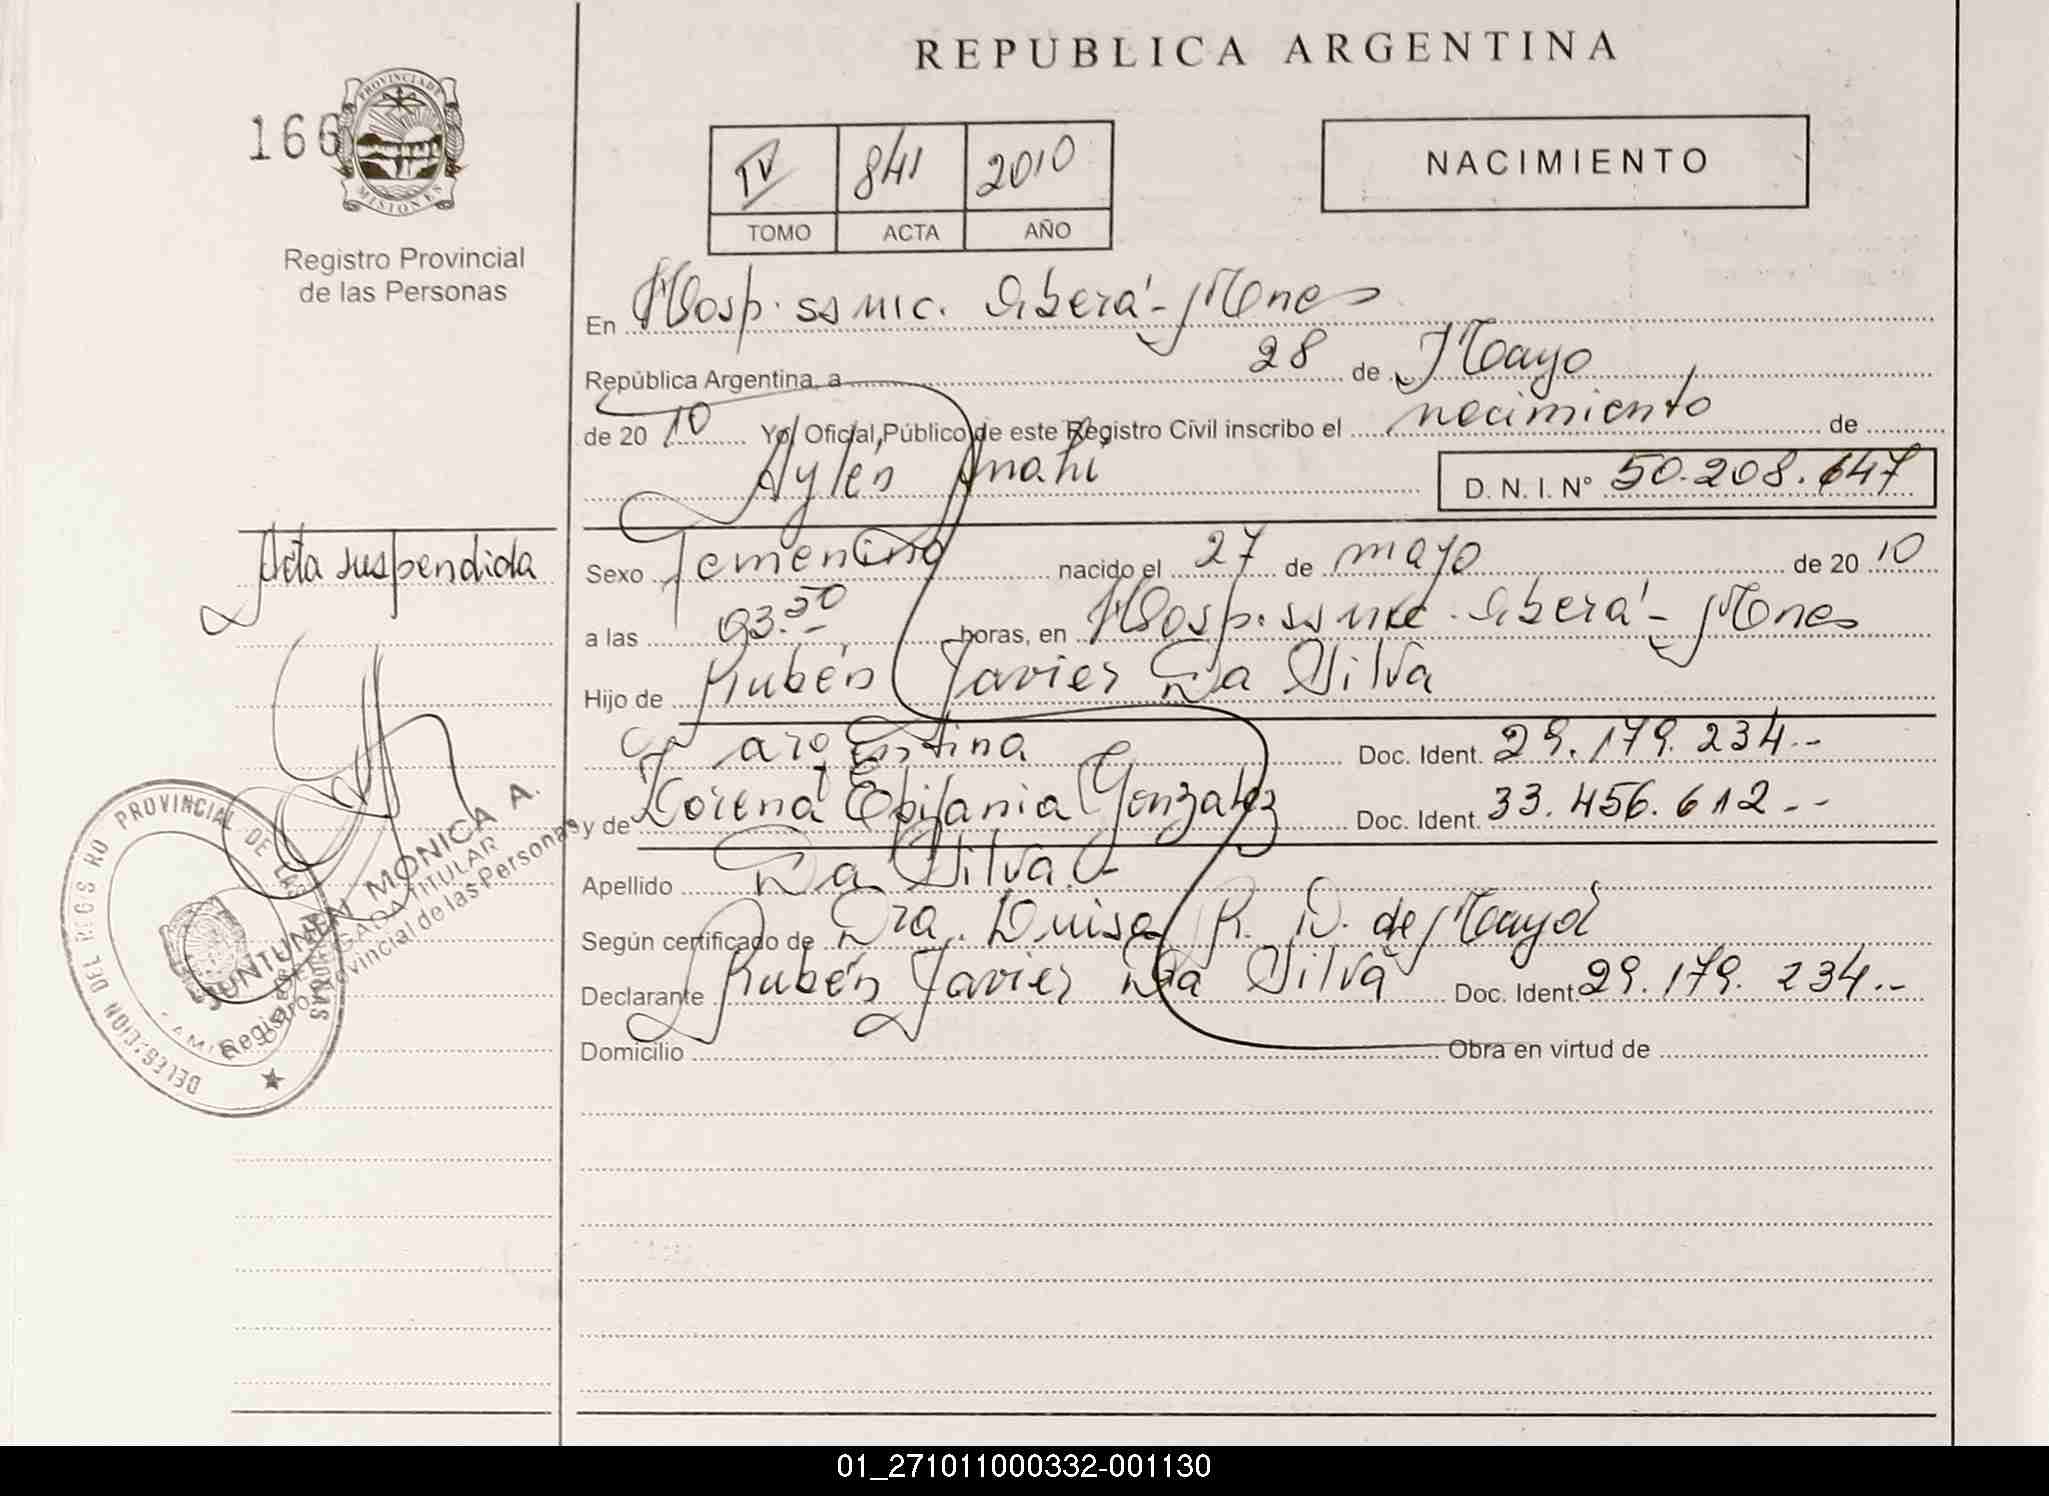 REPUBLICA ARGENTINA
166
PROVINCIA DE MISIONES
Registro Provincial
de las Personas
IV 841 2010
TOMO ACTA AÑO
NACIMIENTO
En Hosp. ssmic. Oberá - Mnes
República Argentina, a 28 de Mayo
de 2010 Yo, Oficial Público de este Registro Civil inscribo el nacimiento de
Aylén Anahí D. N. I. N° 50.208.647
Acta suspendida
Sexo Femenino nacido el 27 de mayo de 2010
a las 03.50 horas, en Hosp. ssmic. Oberá - Mnes
Hijo de Rubén Javier Da Silva
argentina Doc. Ident. 29.179.234.--
y de Lorena Epifania Gonzalez Doc. Ident. 33.456.612--
Apellido Da Silva.
Según certificado de Dra. Luisa R. D. de Mayol
Declarante Rubén Javier Da Silva Doc. Ident. 29.179.234.--
Domicilio Obra en virtud de
DELEGACION DEL REGISTRO PROVINCIAL DE LAS PERSONAS
JUNTUNEN MONICA A.
DELEGADA TITULAR
Registro Provincial de las Personas
01_271011000332-001130